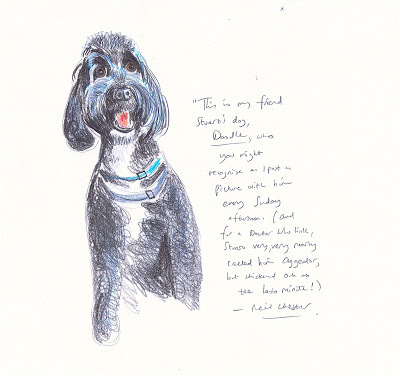 "This is my friend
Stuart's dog,
Doodle, who
you might
recognise as I post a
picture with him
every Sunday
afternoon. (and
for a Doctor Who link,
Stuart very, very nearly
called him Aggedor,
but chickened out at
the last minute!)
— Neil Chester